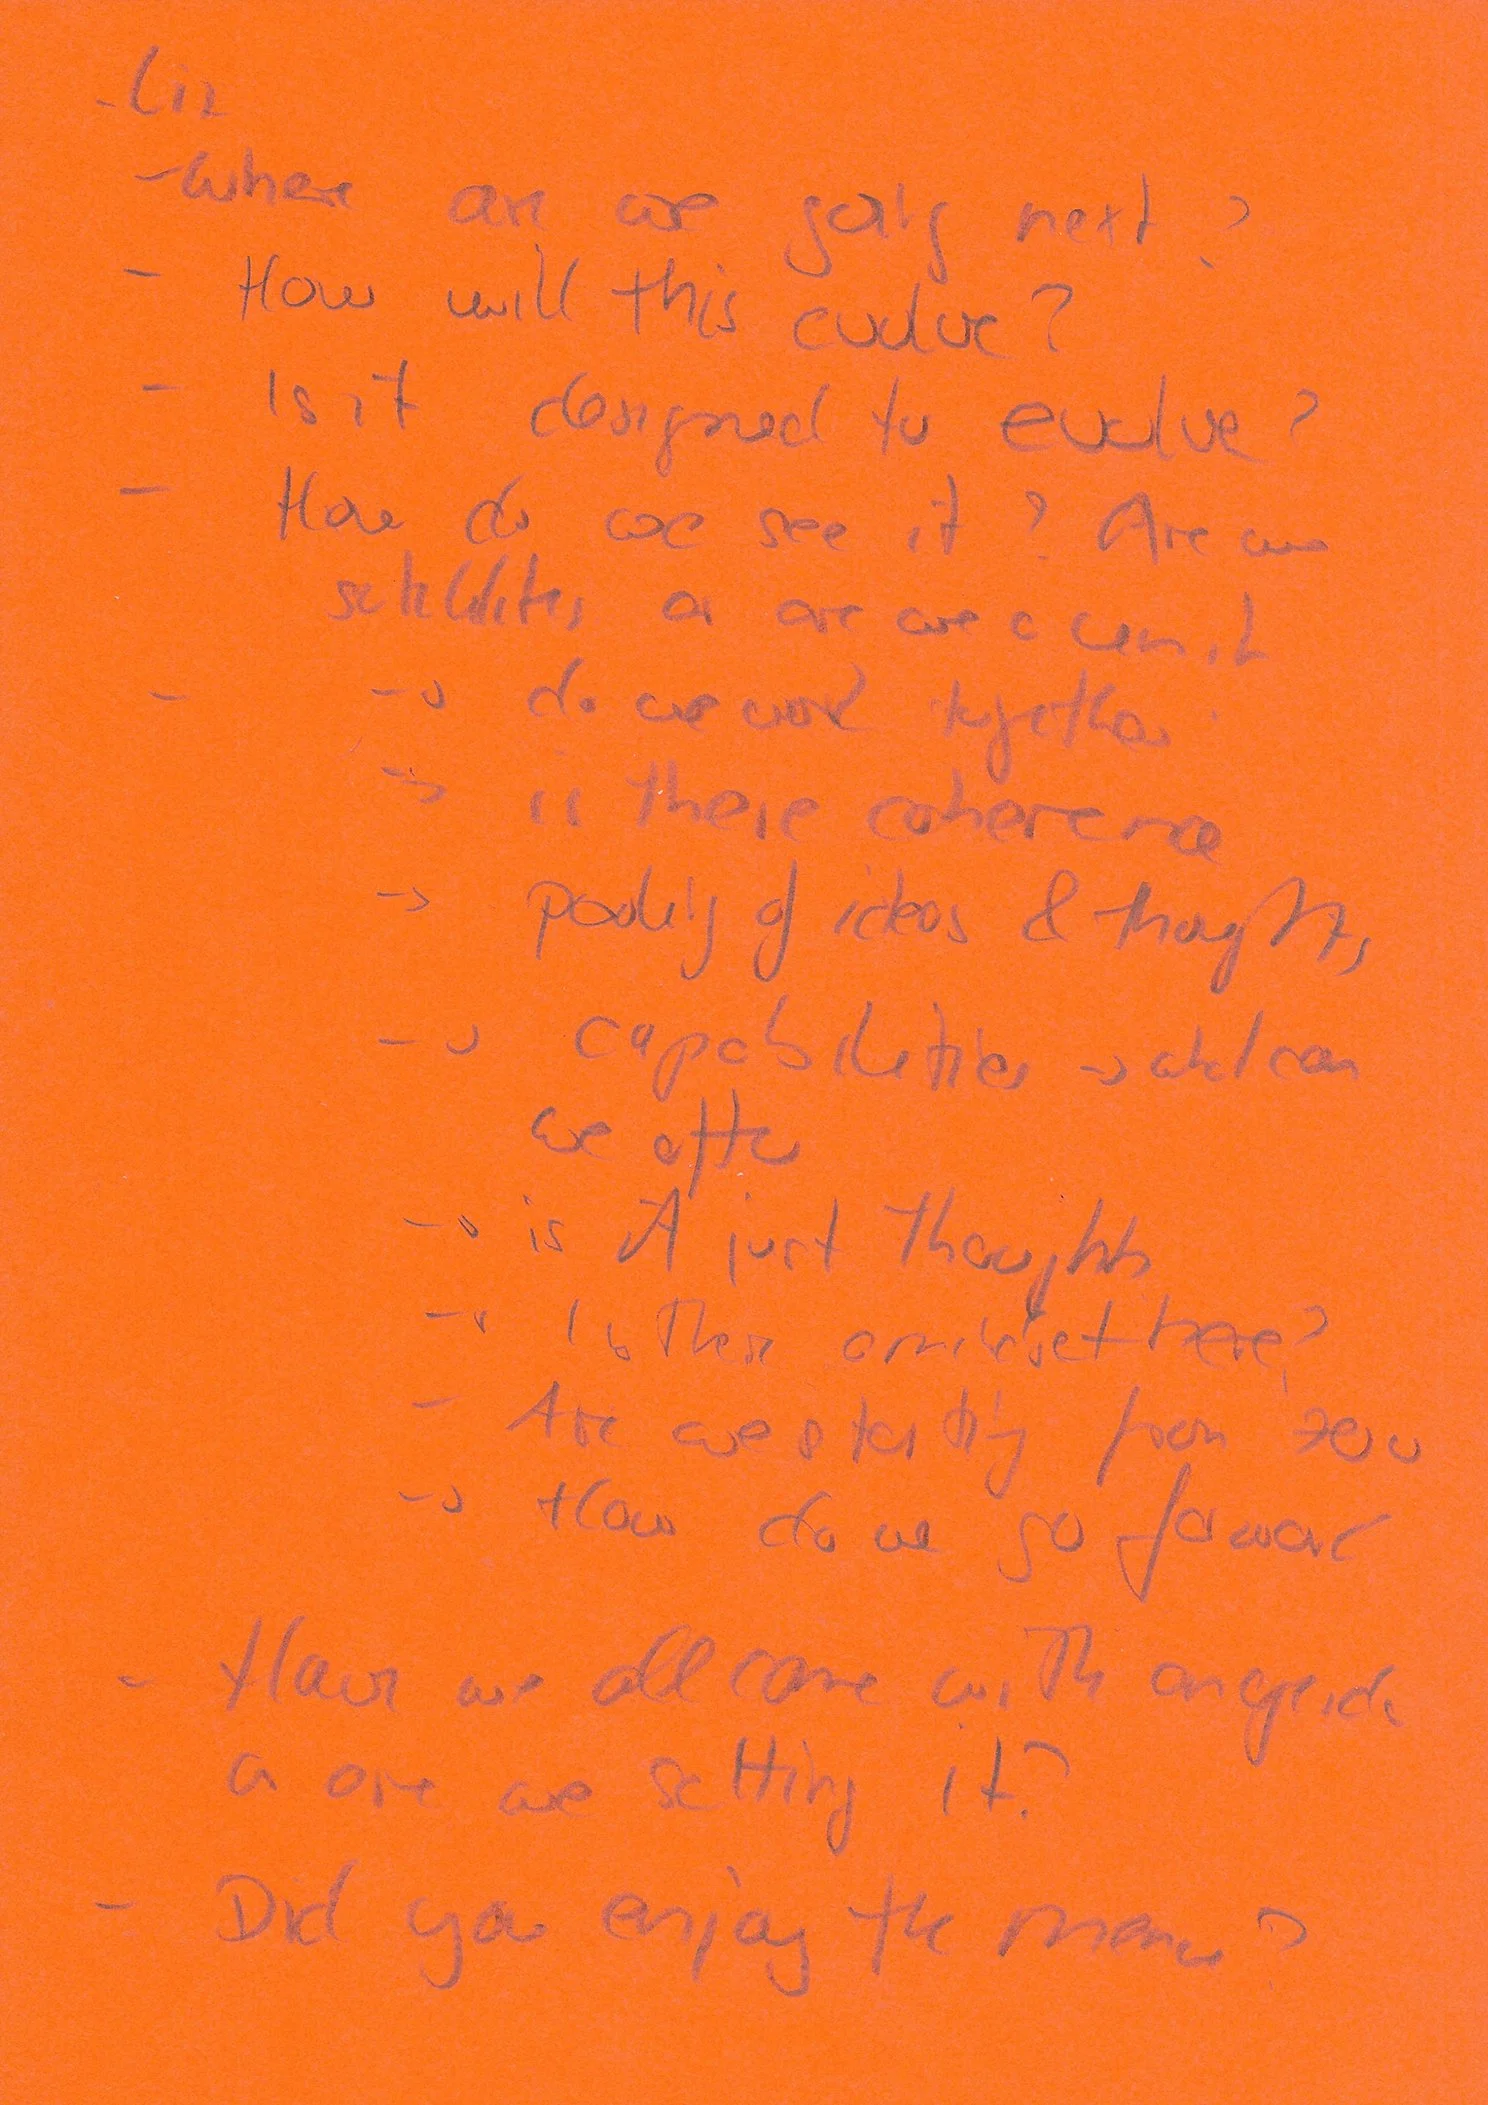 - Liz
- Where are we going next?
- How will this evolve?
- Is it designed to evolve?
- How do we see it? Are we
satellites or are we a
- → do we work together
→ is there coherence
→ pooling of ideas & thoughts,
→ capabilities → what can
we offer
→ is it just thoughts
→ Is there a mindset here?
- Are we starting from zero
→ How do we go forward
- Have we all come with an agenda
or are we setting it?
- Did you enjoy the menu?